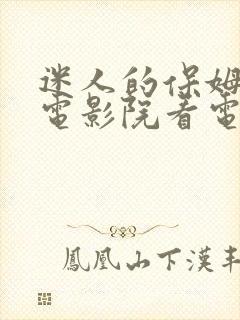 迷人的保姆
電影院看電
鳳凰山下漢丰